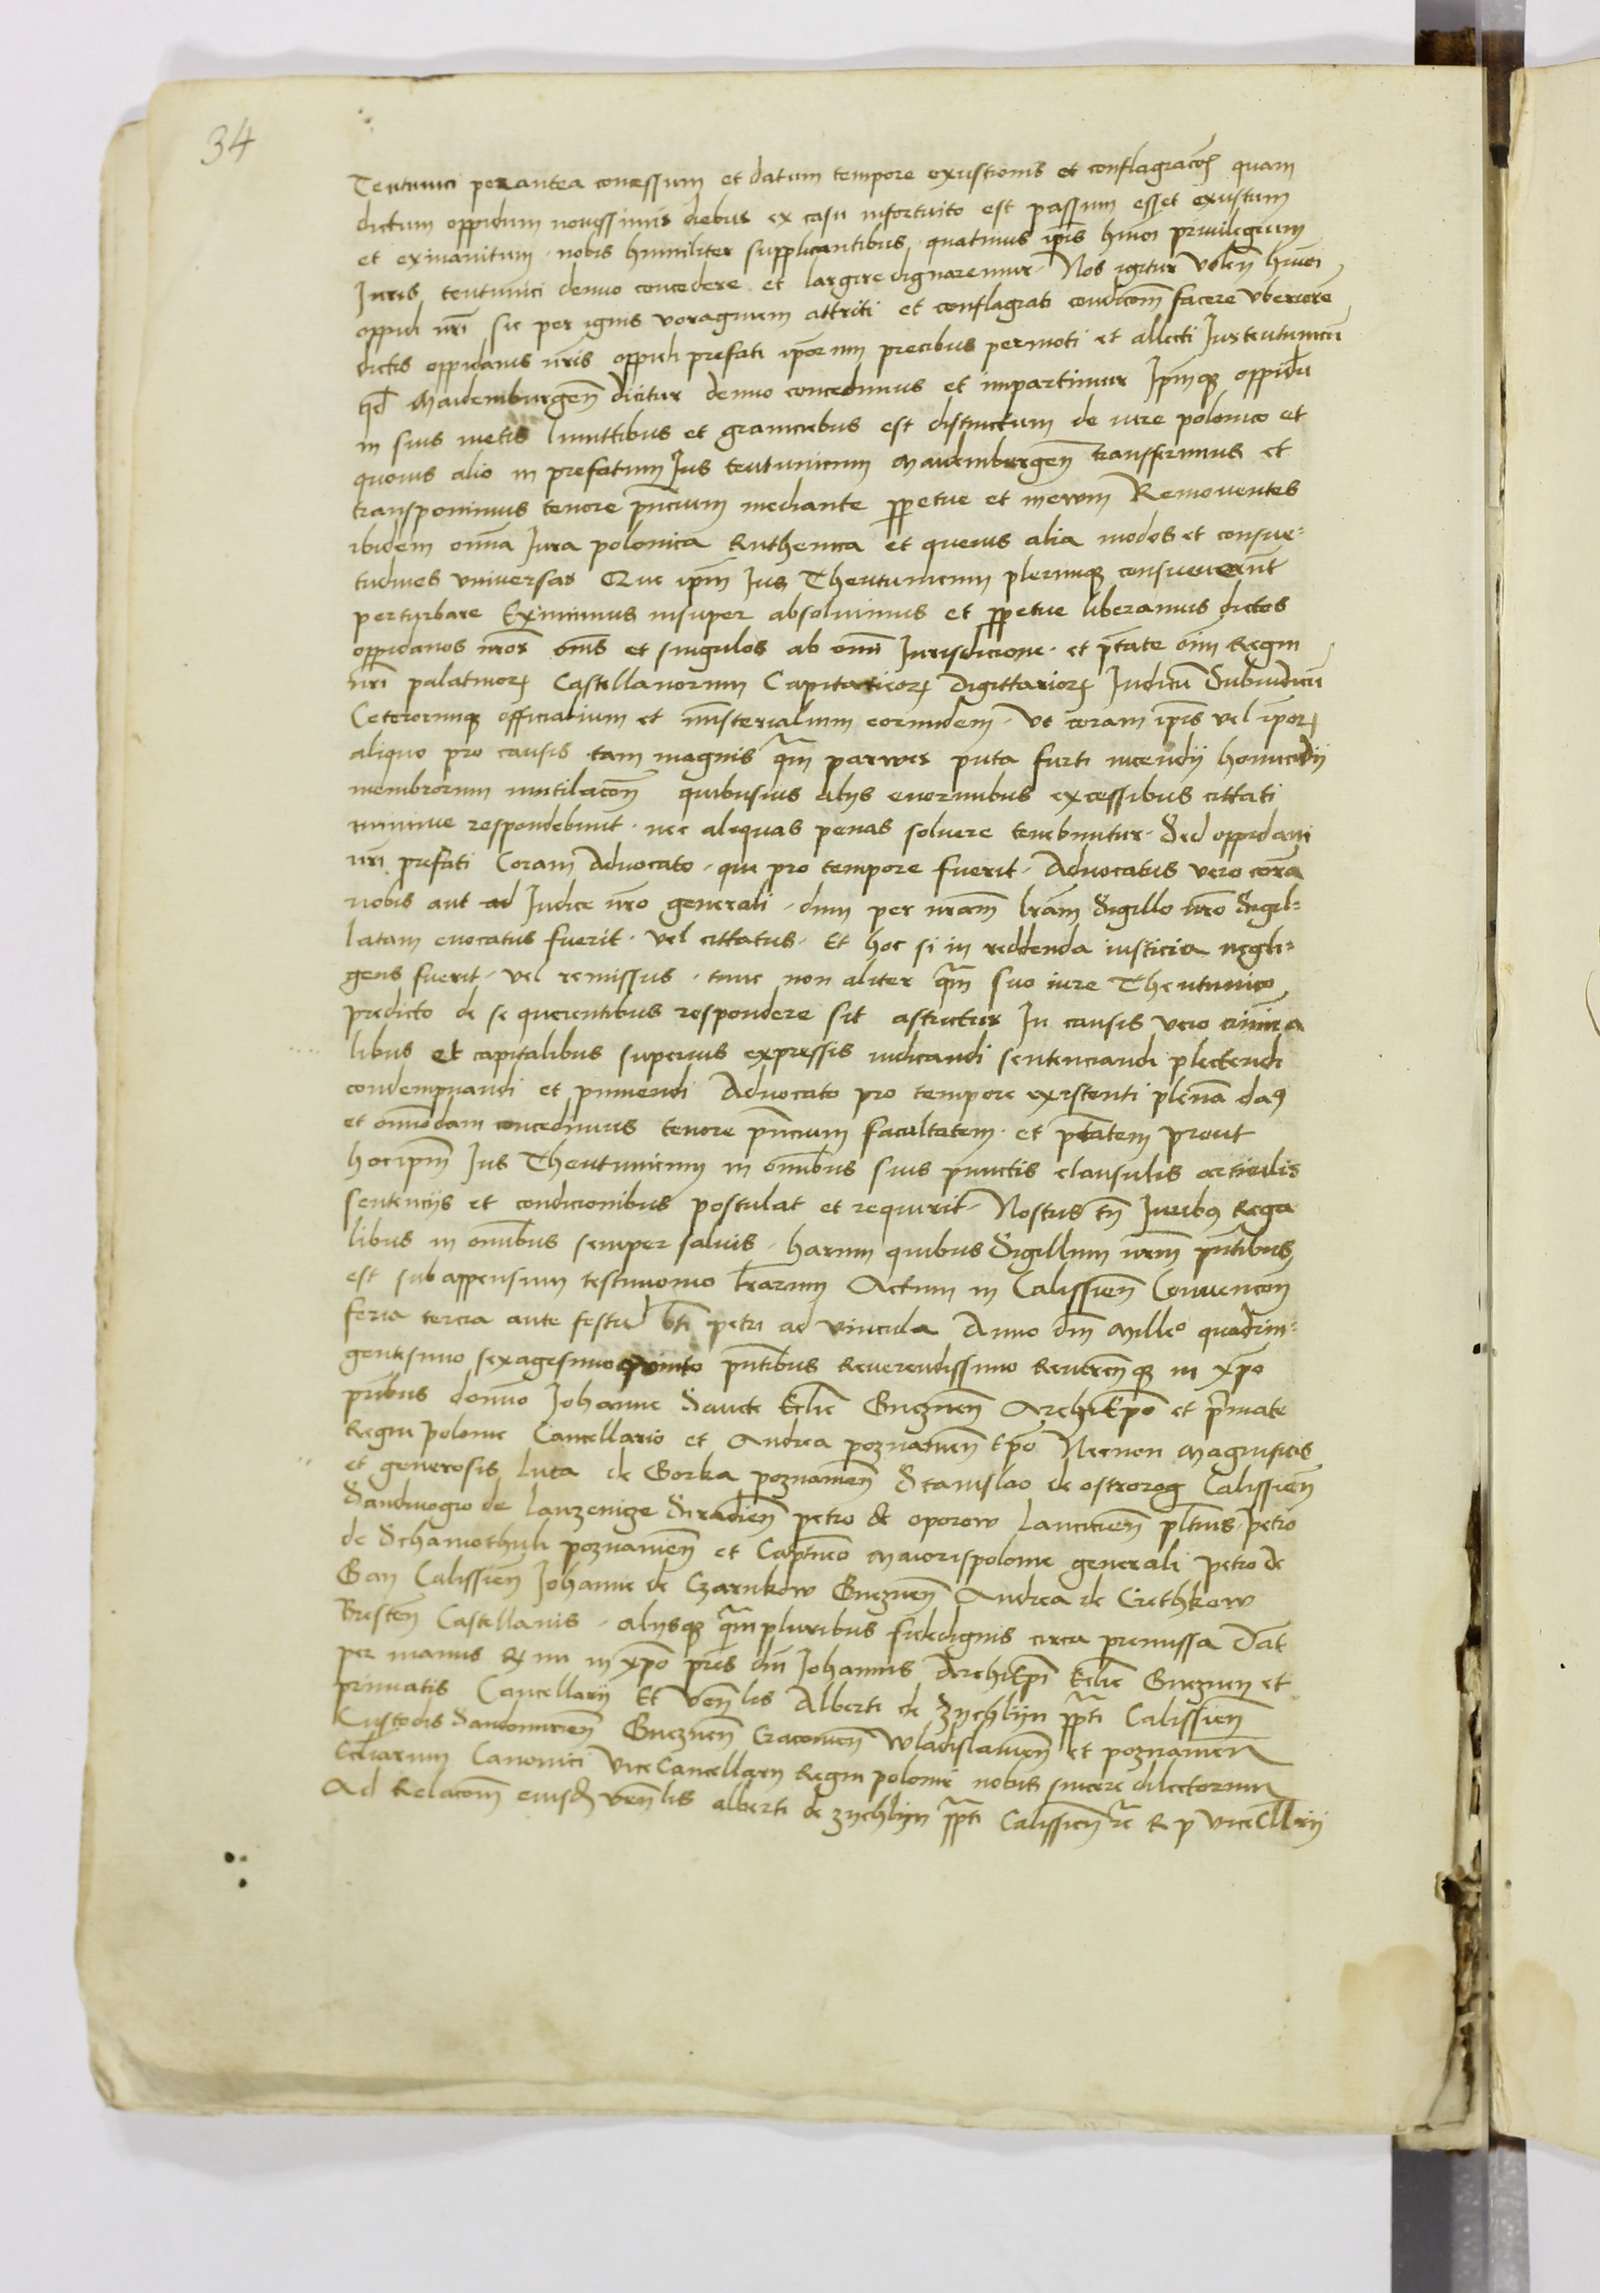 34
Teutunici perantea concessum et datum tempore exustionis et conflagracōis quam
dictum oppidum novissimis diebus ex casu infortuito est passum esset exustum
et exinanitum. nobis humiliter supplicantibus. quatinus ip̄is hmōi privilegium
Juris teutunici denuo concedere et largire dignaremur. Nos igitur volen̄ hmōi
oppidi nr̄i sic per ignis voraginem attriti et conflagrati condicōm̄ facere vberiorē
dictis oppidanis nr̄is oppidi prefati ip̄orum precibus permoti et allecti Jus teutunicū
qd̄ Maidemburgen̄ dicitur denuo concedimus et impartimur Ip̄mqȝ oppidū
in suis metis limittibus et graniciebus est distinctum de iure polonico et
quovis alio in prefatum Jus teutunicum Maidemburgen̄ transferimus et
transponimus tenore pn̄cium mediante ꝑpetue et in ewm Removentes
ibidem omnia Jura polonica Ruthenica et quevis alia modos et consue-
tudines vniversas Que ip̄m Jus Theutunicum plerumqȝ consueverūt
perturbare Eximimus insuper absolvimus et ꝑpetue liberamus dictos
oppidanos nr̄os om̄s et singulos ab omni Jurisdicione. et ptāte om̄i Regni
nr̄i palatinorꝝ Castellanorum Capitaneorꝝ Digittariorꝝ Judicū Subiudicū
Ceterorumqȝ officialium et mīsterialium eorundem. Vt coram ip̄is vel ip̄orꝝ
aliquo pro causis tam magnis q̄m parwis puta furti incendij homicidij
membrorum mutilacōn̄ quibusvis alijs enormibus excessibus cittati
minime respondebunt. nec aliquas penas solvere tenebuntur. Sed oppidani
nr̄i prefati Coram Advocato. qui pro tempore fuerit. Advocatus vero corā
nobis aut ad Judice nr̄o generali. dum per nr̄am lr̄am Sigillo nr̄o Sigil-
latam evocatus fuerit. vel cittatus. Et hoc si in reddenda iusticia negli-
gens fuerit. vel remissus. tunc non aliter q̄m suo iure Theutunico
predicto de se querentibus respondere sit astrictus In causis vero crimina
libus et capitalibus superius expressis iudicandi sentenciandi plectendi
condempnandi et puniendi Advocato pro tempore existenti plenā daꝯ
et om̄imodam concedimus tenore pn̄cium facultatem. et ptātem prout
hoc ip̄m Jus Theutunicum in om̄ibus suis punctis clausulis articulis
sentencijs et condicionibus postulat et requirit. Nostris tn̄ Juribꝯ Rega
libus in om̄ibus semper salvis. Harum quibus Sigillum nr̄m pn̄tibus
est subappensum testimonio lr̄arum Actum in Calissien̄ Convencōn̄
feria tercia ante festū bt̄i petri ad vincula Anno dn̄i Mille° quadrin-
gentesimo sexagesimo quinto pn̄tibus Reverendissimo Reverēn̄qȝ in xp̄o
pr̄ibus domino Johanne Sancte Ecl̄ie Gneznen̄ Archiep̄o et pr̄imate
Regni Polonie Cancellario et Andrea poznanien̄ Ep̄o Necnon Magnificis
et generosis Luca de Gorka poznanien̄ Stanislao de ostrorog Calissien̄
Sandivogio de Lanzenige Siradien̄ Petro de oporow Lancicien̄ pl̄tinis. petro
de Schamothuli poznanien̄ et Capitneo Maiorispolonie generali Petro de
Gay Calissien̄ Johanne de Czarnkow Gneznen̄ Andrea de Crethkow
Bresten̄ Castellanis. alijsqȝ q̄mpluribus fidedignis circa premissa Dat
per manus R mi in xp̄o pr̄is dn̄i Johannis Archiep̄i Ecl̄ie Gneznen̄ et
primatis Cancellarij Et Ven̄lis Alberti de Zychlijn ꝓpti Calissien̄
Custodis Sandomirien̄ Gneznen̄ Cracovien̄ Wladislavien̄ et poznanien̄
Ecl̄iarum Canonici ViceCancellarij Regni polonie nobis sincere dilectorum
Ad Relacōm̄ eiusdꝭ Ven̄lis alberti de zychlijn ꝓpti Calissien̄ rc̄ R p ViceCll̄rij